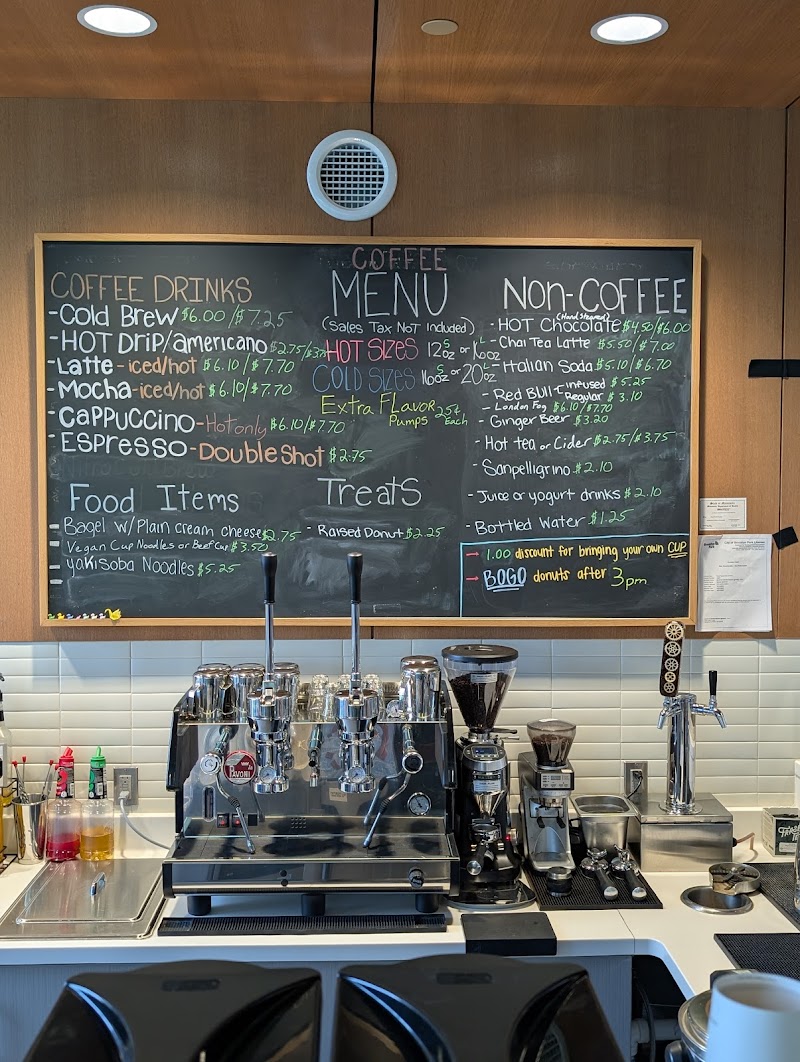 COFFEE
MENU
(Sales Tax Not Included)
HOT SIZES 12oz S or 16oz L
COLD SIZES 16oz S or 20oz L
Extra Flavor
Pumps 25¢ Each
COFFEE DRINKS
- Cold Brew $6.00/$7.25
- HOT DRIP/americano $2.75/$3.75
- Latte - iced/hot $6.10/$7.70
- Mocha - iced/hot $6.10/$7.70
- Cappuccino - Hot only $6.10/$7.70
- Espresso - Double Shot $2.75
Food Items
Bagel w/Plain cream cheese $2.75
Vegan Cup Noodles or Beef Cup $3.50
Yakisoba Noodles $5.25
Treats
- Raised Donut $2.25
Non-COFFEE
(Hand Steamed)
- HOT Chocolate $4.50/$6.00
- Chai Tea Latte $5.50/$7.00
- Italian Soda $5.10/$6.70
- Red Bull - infused $5.25
- Regular $3.10
- London Fog $6.10/$7.70
- Ginger Beer $3.20
- Hot tea or Cider $2.75/$3.75
- Sanpelligrino $2.10
- Juice or yogurt drinks $2.10
- Bottled Water $1.25
→ 1.00 discount for bringing your own CUP
→ BOGO donuts after 3pm
PAVONI